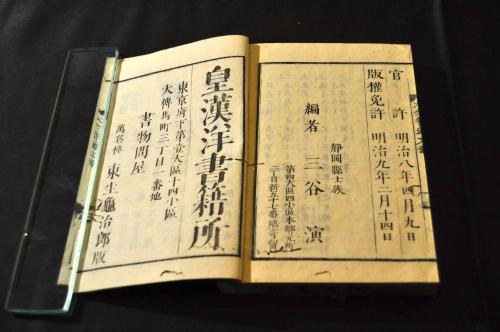 官許 明治八年四月九日
版權免許 明治九年二月十四日
靜岡縣士族
編者 三谷演
第四大區四小區本鄕元町
二丁目新五十七番地寄留
皇漢洋書籍所
東京府下第壹大區十四小區
大傳馬町三丁目一番地
書物問屋
萬卷樓 東生龜治郎版